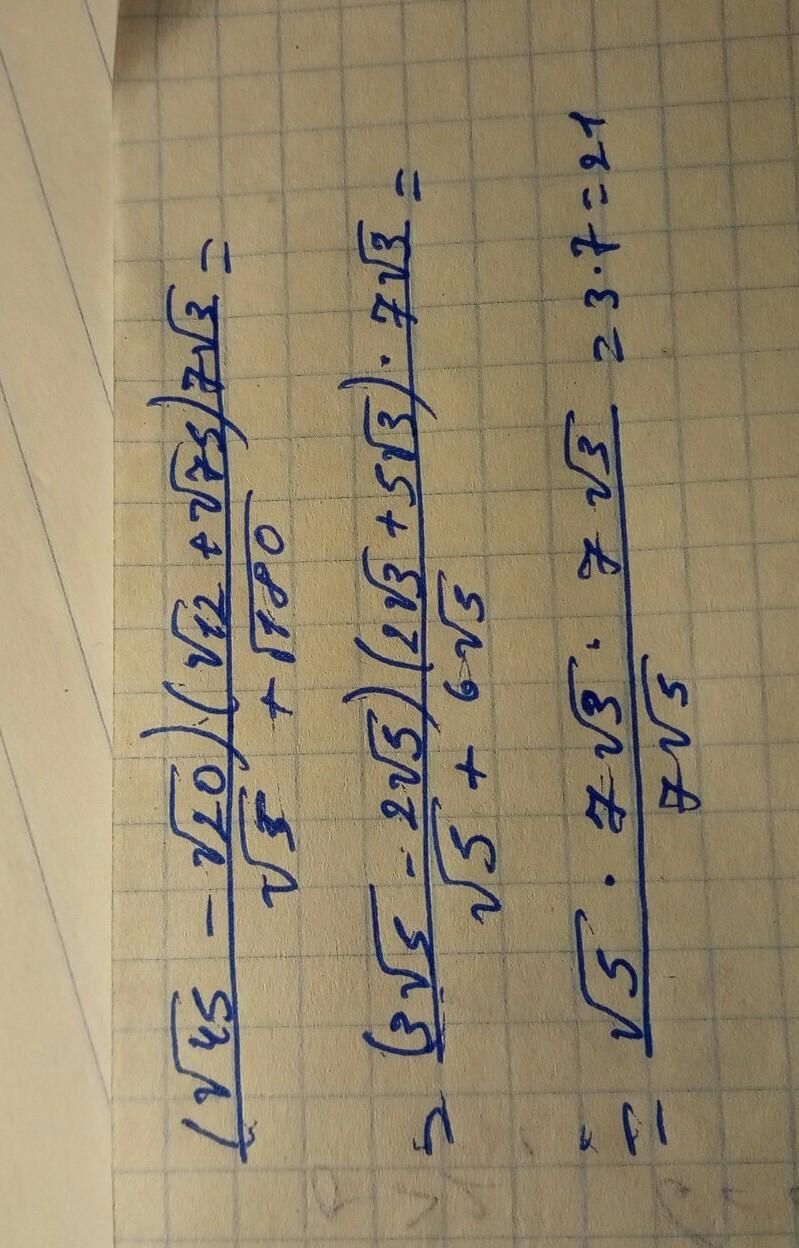 (√45 - √20)(√12 + √75)7√3 =
√5 + √180
= (3√5 - 2√5)(2√3 + 5√3) · 7√3 =
√5 + 6√5
= √5 · 7√3 · 7√3 = 3·7=21
7√5